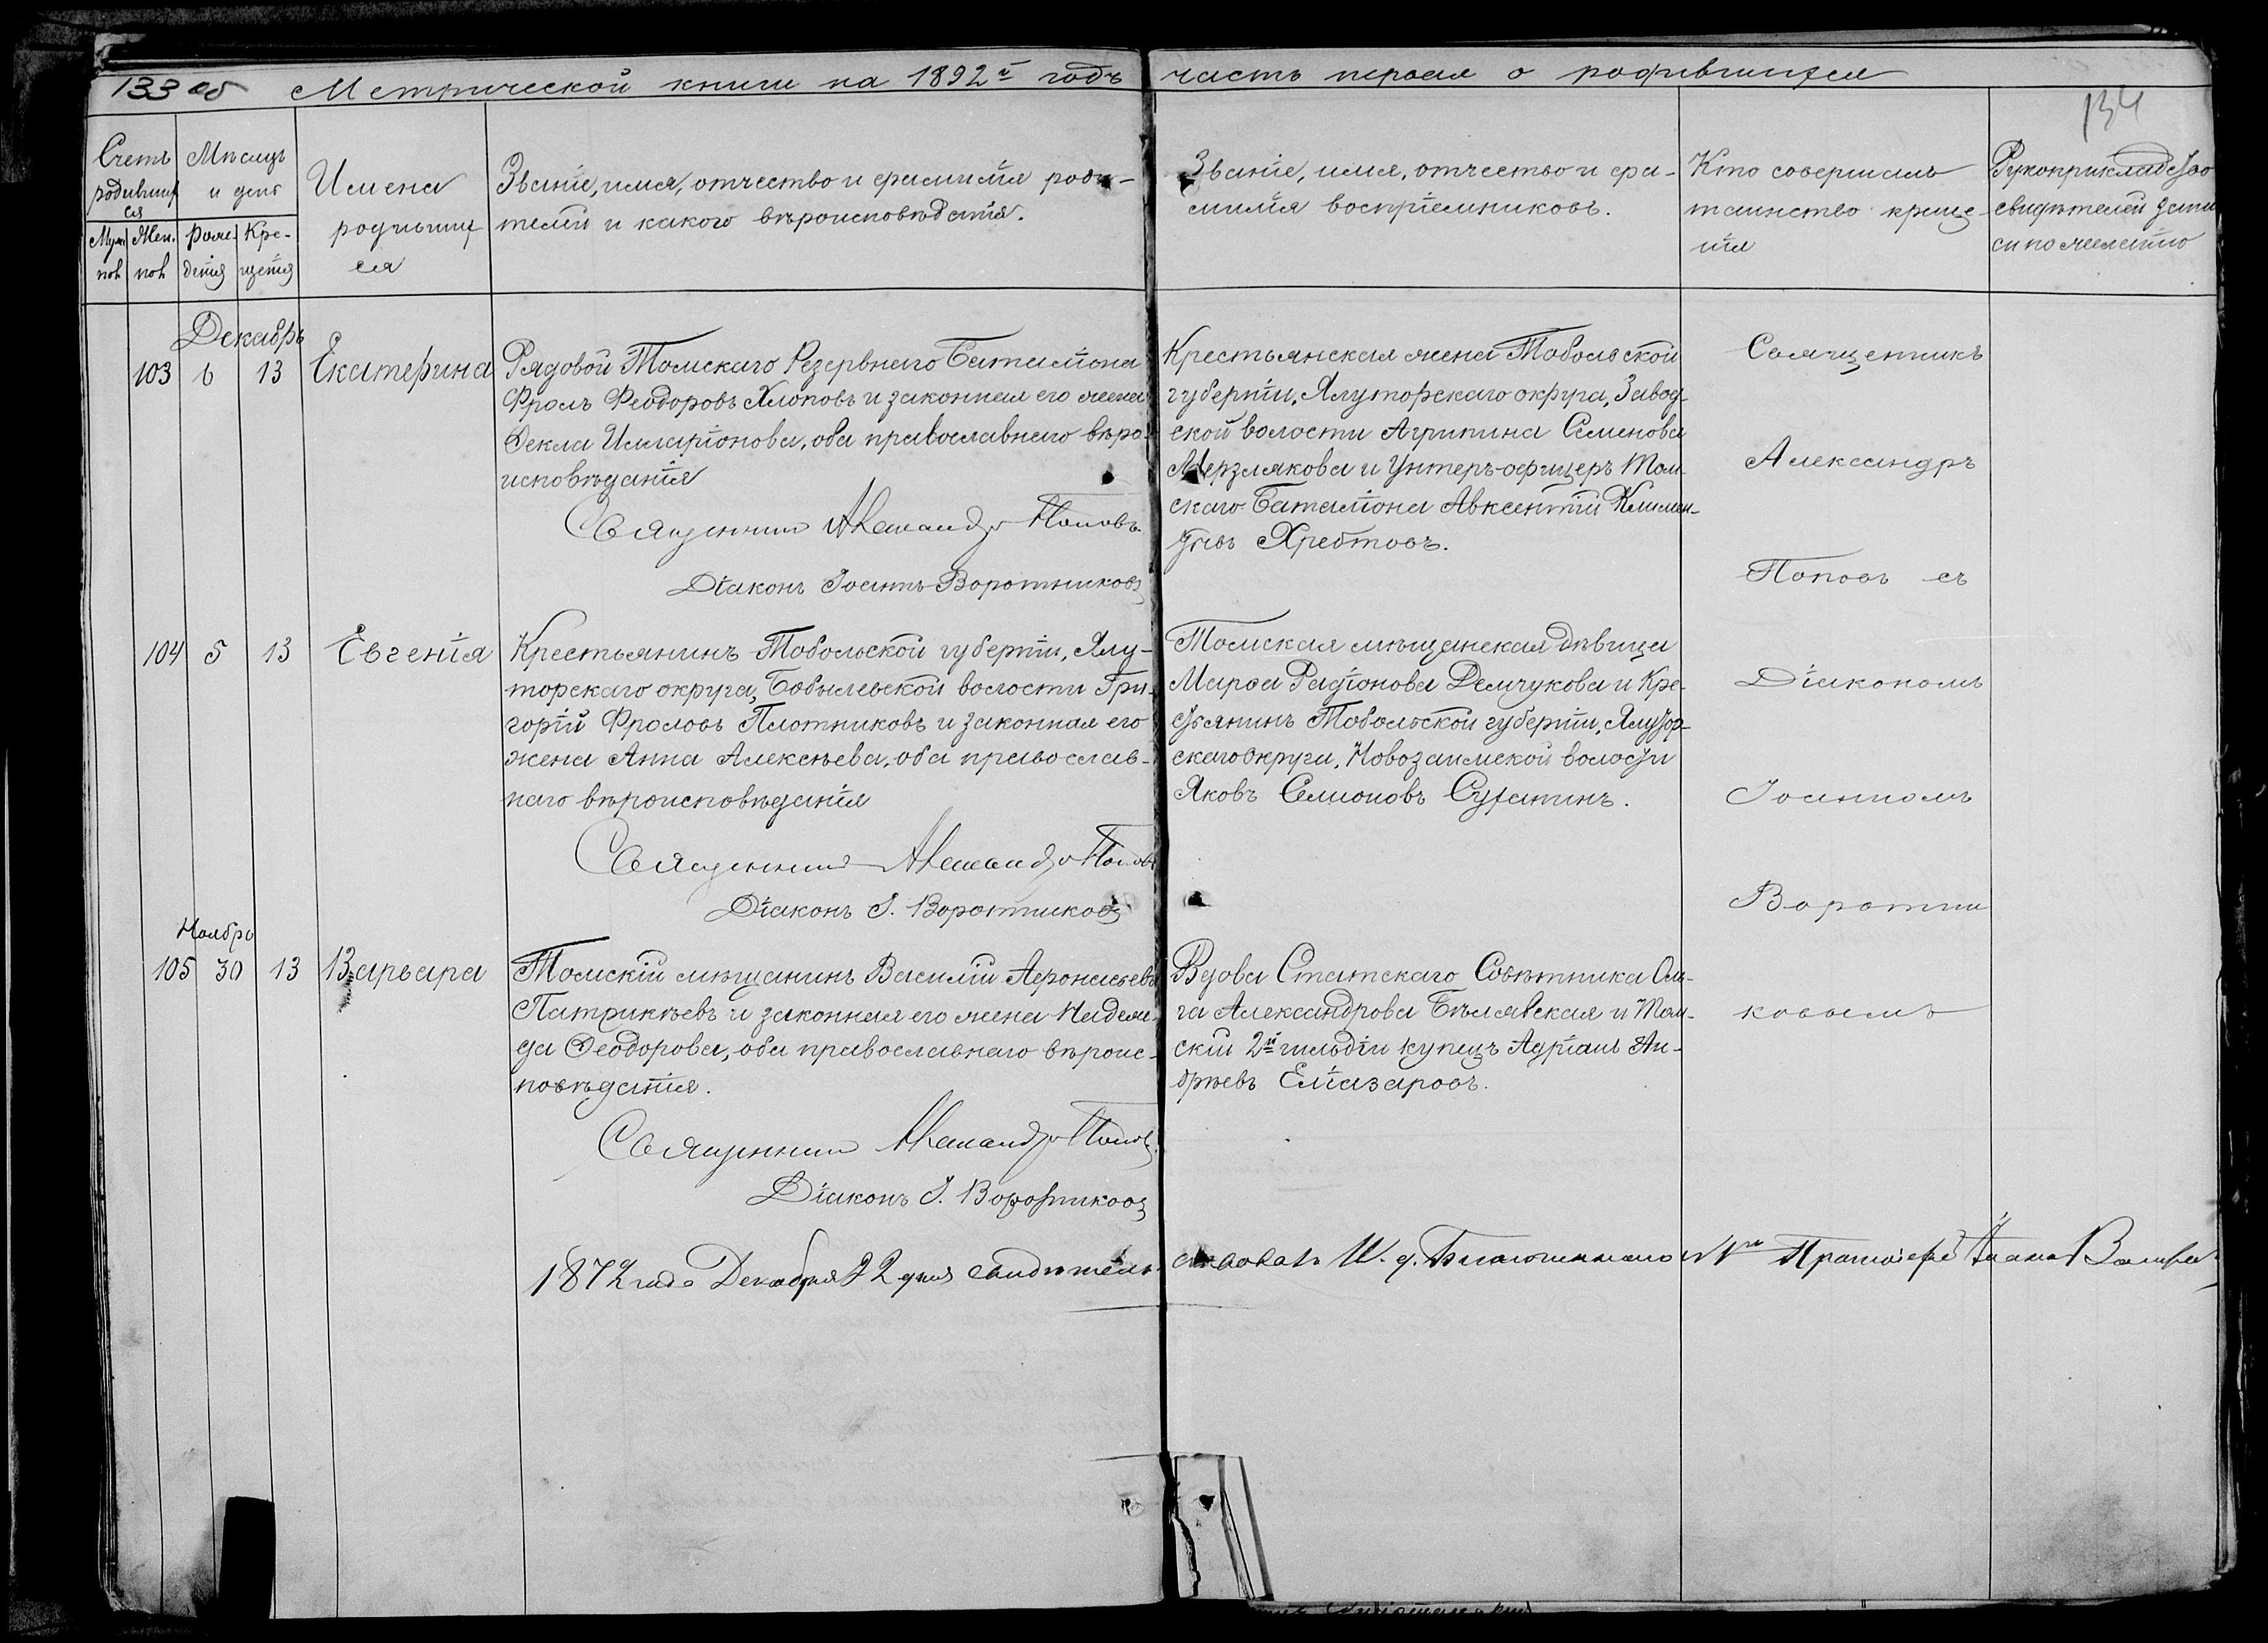 133 об Метрической книги на 1892й годъ часть первая о родившихся
134
Счетъ родившихся
Мѣсяцъ и день
Мужескъ полъ
Женскъ полъ
Рожденія
Крещенія
Имена
родившихся
Званіе, имя, отчество и фамилія роди-
телей и какого вѣроисповѣданія.
Званіе, имя, отчество и фа-
милія воспріемниковъ.
Кто совершалъ
таинство креще
нія
Рукоприкладство
свидѣтелей записи
по желанію
Декабрь
103 6 13 Екатерина
Рядовой Томскаго Резервнаго Баталіона
Фролъ Феодоровъ Хлоповъ и законная его жена
Ѳекла Илларіонова, оба православнаго вѣро-
исповѣданія
Священникъ Александръ Поповъ
Діаконъ Іоаннъ Воротниковъ
Крестьянская жена Тобольской
губерніи, Ялуторскаго округа, Завод-
ской волости Агрипина Семенова
Мерзлякова и Унтеръ-офицеръ Том-
скаго Баталіона Авксентій Климен-
тьевъ Хребтовъ.
Священникъ
Александръ
Поповъ съ
Діакономъ
Іоанномъ
Воротни
ковымъ
104 5 13 Евгенія
Крестьянинъ Тобольской губерніи, Ялу-
торскаго округа, Бобылевской волости Гри-
горій Фроловъ Плотниковъ и законная его
жена Анна Алексѣева, оба православ-
наго вѣроисповѣданія
Священникъ Александръ Поповъ
Діаконъ І. Воротниковъ
Томская мѣщанская дѣвица
Марѳа Радіонова Демчукова и Кре-
стьянинъ Тобольской губерніи, Ялутор-
скаго округа, Новозаимской волости
Яковъ Симоновъ Сухатинъ.
Ноябрь
105 30 13 Варвара
Томскій мѣщанинъ Василій Афонасьевъ
Патрикѣевъ и законная его жена Надеж-
да Ѳеодорова, оба православнаго вѣроис-
повѣданія.
Священникъ Александръ Поповъ
Діаконъ І. Воротниковъ
Вдова Статскаго Совѣтника Оль-
га Александрова Бѣлявская и Том-
скій 2й гильдіи купецъ Адріанъ Ан-
дрѣевъ Еліазаровъ.
1872 года Декабря 22 дня свидѣтель-
ствовалъ И. д. Благочиннаго № 1го